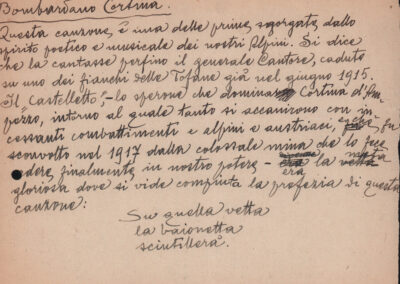 Bombardano Cortina.
Questa canzone, è una delle prime sgorgate dallo
spirito poetico e musicale dei nostri Alpini. Si dice
che la cantasse perfino il generale Cantore, caduto
su uno dei fianchi delle Tofane già nel giugno 1915.
Il "Castelletto", - lo sperone che domina Cortina d'Am-
pezzo, intorno al quale tanto si accanirono con in-
cessanti combattimenti e alpini e austriaci, fu
sconvolto nel 1917 dalla colossale mina che lo fece
cadere, finalmente, in nostro potere - era la meta
gloriosa dove si vide compiuta la profezia di questa
canzone:
Su quella vetta
la baionetta
scintillerà.